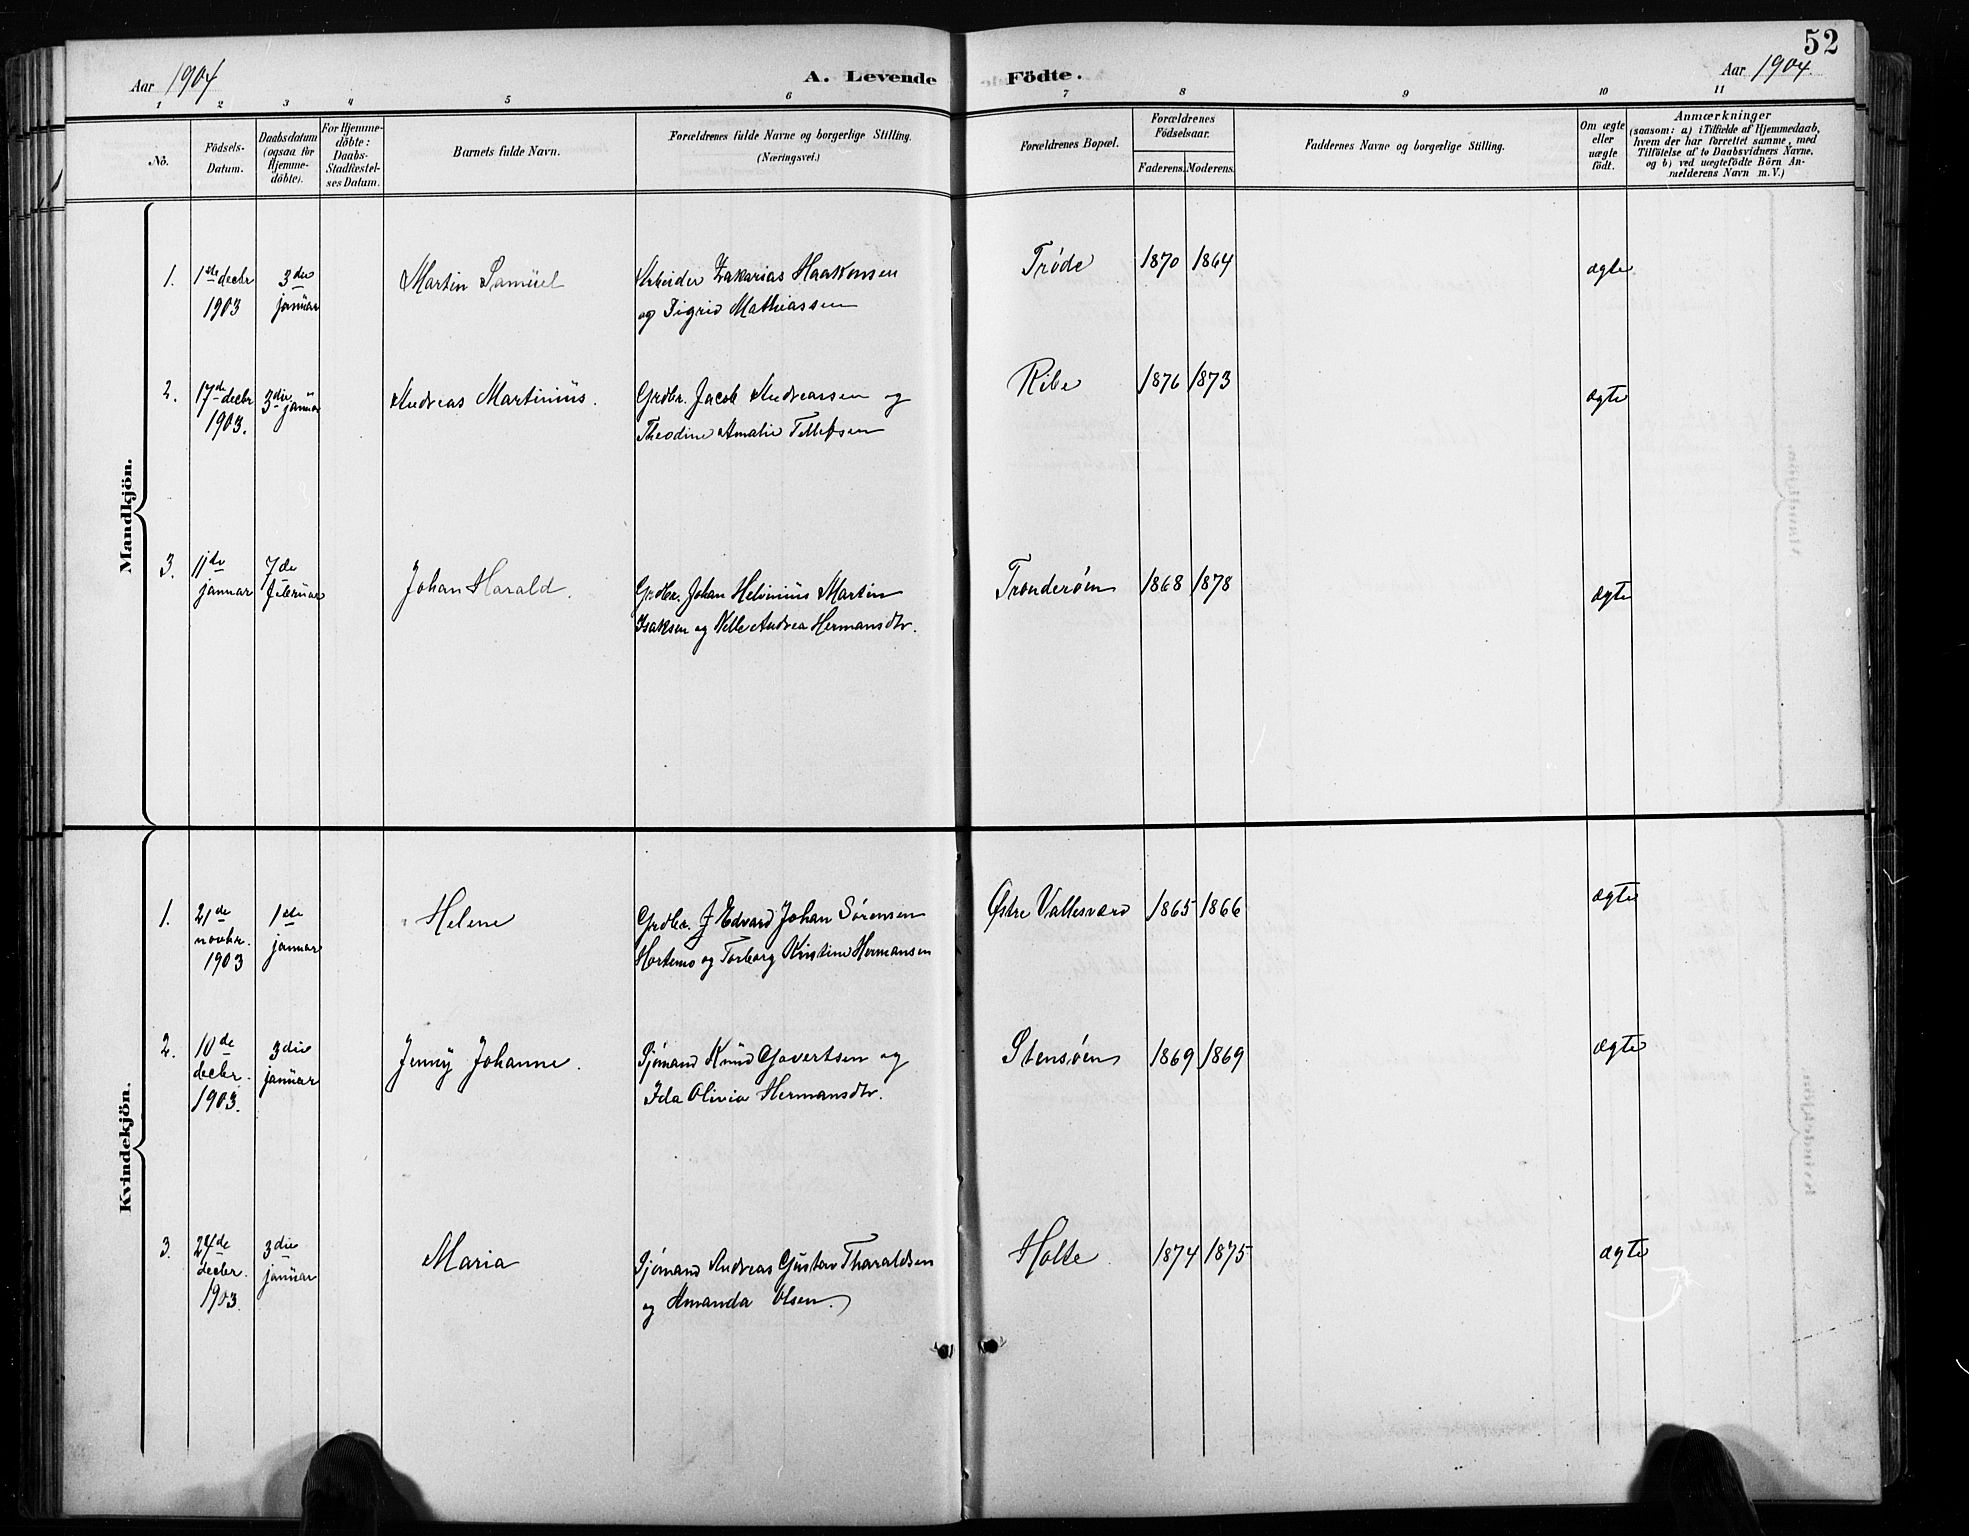 52
Aar 1904 A. Levende Födte. Aar 1904.
1 2 3 4 5 6 7 8 9 10 11
No.
Födsels-
Datum.
Daabsdatum
(ogsaa for
Hjemme-
döbte).
For Hjemme-
döbte:
Daabs-
Stadfæstel-
ses Datum.
Barnets fulde Navn.
Forældrenes fulde Navne og borgerlige Stilling.
(Næringsvei.)
Forældrenes Bopæl.
Forældrenes
Födselsaar.
Faderens. Moderens.
Faddernes Navne og borgerlige Stilling.
Om ægte
eller
uægte
födt.
Anmærkninger
(saasom: a) i Tilfælde af Hjemmedaab,
hvem der har forrettet samme, med
Tilföielse af to Daabsvidners Navne,
og b) ved uægtefödte Börn An-
melderens Navn m. V.)
Mandkjön.
1. 1ste decbr 3die Martin Samüel Arbeider Zakarias Haakonsen Trøde 1870 1864 ægte
1903 januar og Sigrid Mathiassen
2. 17de decbr 3die januar Andreas Martinius. Grdbr. Jacob Andreassen og Ribe 1876 1873 ægte
1903. Theodine Amalie Tellefsen
3. 11te 7de Johan Harald. Grdbr. Johan Helvinius Martin Tronderøen 1868 1878 ægte
januar februar Isaksen og Nelle Andrea Hermansdtr.
Kvindekjön.
1. 21de 1ste Helene Grdbr. Edvard Johan Sørensen Østre Vallesværd 1865 1866 ægte
novbr. januar Hortemo og Torborg Kristine Hermansen
1903
2. 10de 3die Jenny Johanne. Sjømand Knud Govertsen og Stensøen 1869 1869 ægte
decbr. januar Ida Olivia Hermansdtr.
1903.
3. 24de 3die Maria Sjømand Andreas Gustav Tharaldsen Holte. 1874 1875 ægte
decbr. januar og Amanda Olsen.
1903.